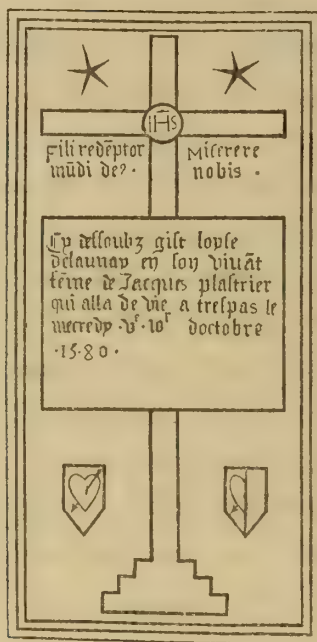 IHS
Fili redēptor Miserere
mūdi deꝰ · nobis ·
Cy dessoubz gist loyse
delaunay en son viuāt
fēme de Jacques plastrier
qui alla de vie a trespas le
mecredy doctobre
·15·80·